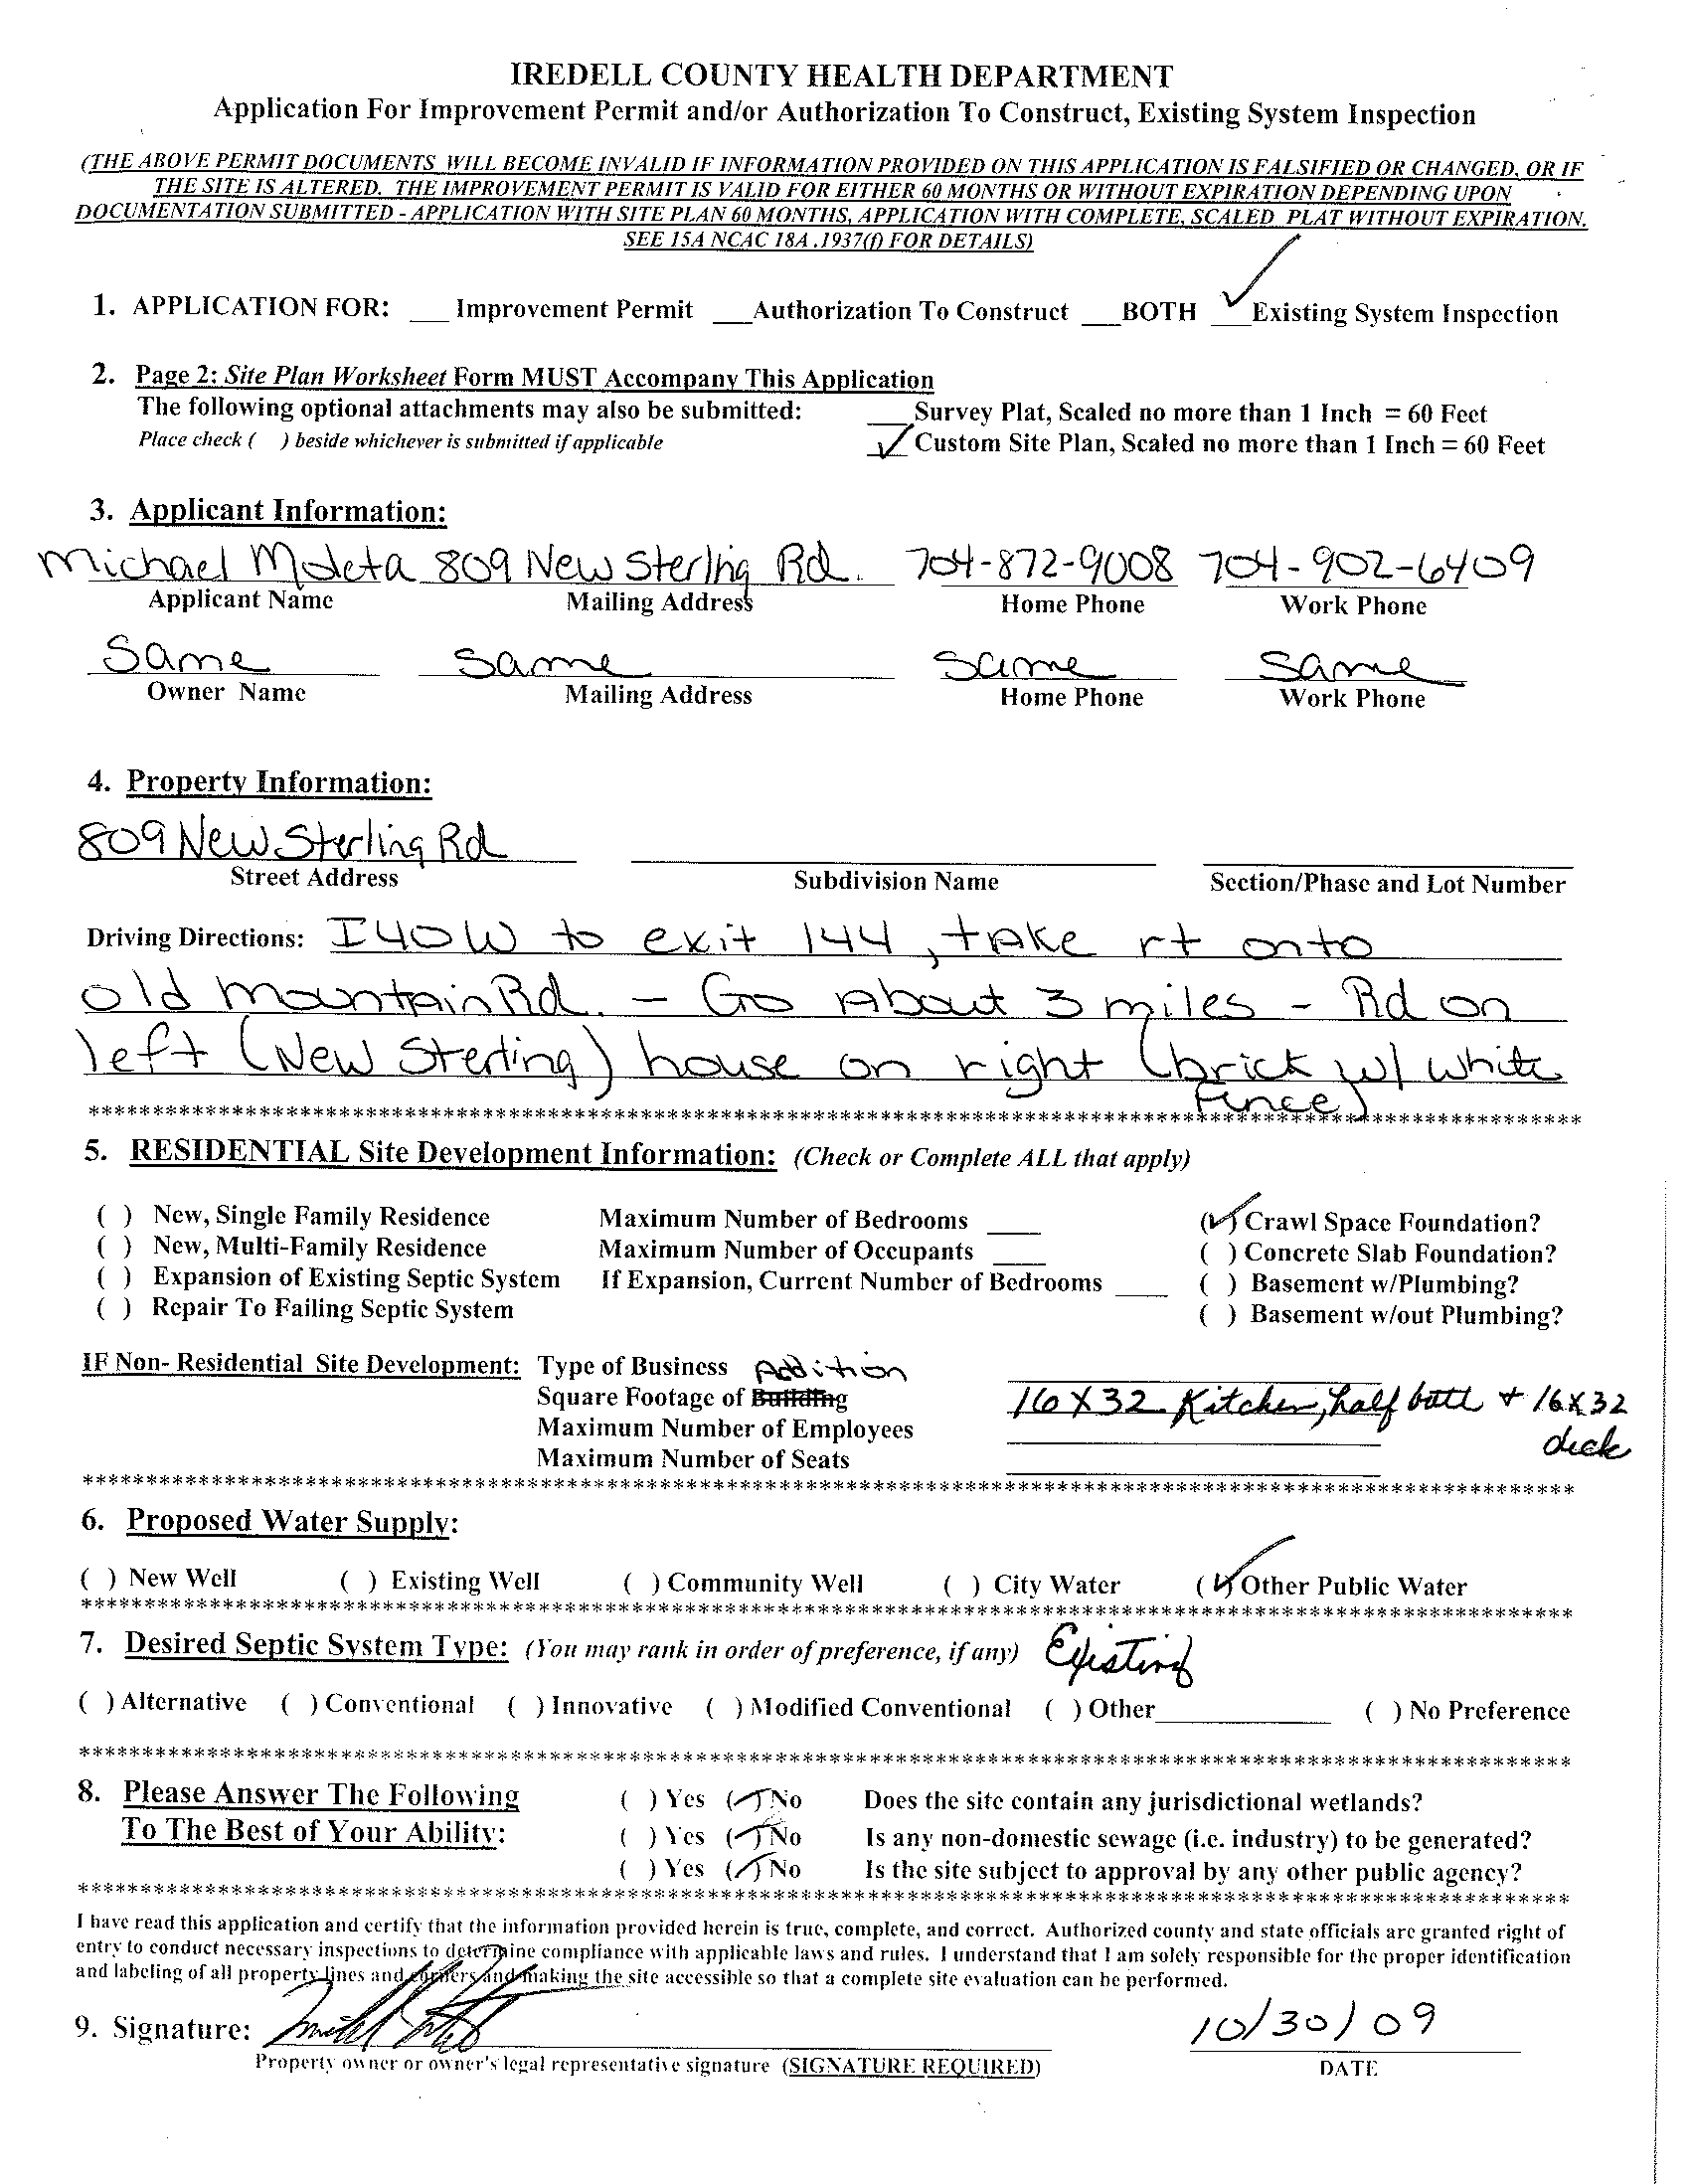 IREDELL COUNTY HEALTH DEPARTMENT
Application For Improvement Permit and/or Authorization To Construct, Existing System Inspection
(THE ABOVE PERMIT DOCUMENTS WILL BECOME INVALID IF INFORMATION PROVIDED ON THIS APPLICATION IS FALSIFIED OR CHANGED, OR IF
THE SITE IS ALTERED. THE IMPROVEMENT PERMIT IS VALID FOR EITHER 60 MONTHS OR WITHOUT EXPIRATION DEPENDING UPON
DOCUMENTATION SUBMITTED - APPLICATION WITH SITE PLAN 60 MONTHS, APPLICATION WITH COMPLETE, SCALED PLAT WITHOUT EXPIRATION.
SEE 15A NCAC 18A .1937(f) FOR DETAILS)
1. APPLICATION FOR: ___ Improvement Permit ___Authorization To Construct ___BOTH ✓Existing System Inspection
2. Page 2: Site Plan Worksheet Form MUST Accompany This Application
The following optional attachments may also be submitted: ___Survey Plat, Scaled no more than 1 Inch = 60 Feet
Place check ( ) beside whichever is submitted if applicable ✓Custom Site Plan, Scaled no more than 1 Inch = 60 Feet
3. Applicant Information:
Michael Moleta 809 New Sterling Rd. 704-872-9008 704-902-6409
Applicant Name Mailing Address Home Phone Work Phone
Same Same Same Same
Owner Name Mailing Address Home Phone Work Phone
4. Property Information:
809 New Sterling Rd
Street Address Subdivision Name Section/Phase and Lot Number
Driving Directions: I40W to exit 144, take rt onto
old mountain Rd. - Go About 3 miles - Rd on
left (New Sterling) house on right (brick w/ white
fence)
****************************************
5. RESIDENTIAL Site Development Information: (Check or Complete ALL that apply)
( ) New, Single Family Residence Maximum Number of Bedrooms ____ (✓) Crawl Space Foundation?
( ) New, Multi-Family Residence Maximum Number of Occupants ____ ( ) Concrete Slab Foundation?
( ) Expansion of Existing Septic System If Expansion, Current Number of Bedrooms ____ ( ) Basement w/Plumbing?
( ) Repair To Failing Septic System ( ) Basement w/out Plumbing?
IF Non- Residential Site Development: Type of Business Addition
Square Footage of Building 16 X 32 Kitchen, half bath + 16X32
Maximum Number of Employees deck
Maximum Number of Seats
****************************************
6. Proposed Water Supply:
( ) New Well ( ) Existing Well ( ) Community Well ( ) City Water (✓) Other Public Water
****************************************
7. Desired Septic System Type: (You may rank in order of preference, if any) Existing
( ) Alternative ( ) Conventional ( ) Innovative ( ) Modified Conventional ( ) Other____________ ( ) No Preference
****************************************
8. Please Answer The Following ( ) Yes (✓) No Does the site contain any jurisdictional wetlands?
To The Best of Your Ability: ( ) Yes (✓) No Is any non-domestic sewage (i.e. industry) to be generated?
( ) Yes (✓) No Is the site subject to approval by any other public agency?
****************************************
I have read this application and certify that the information provided herein is true, complete, and correct. Authorized county and state officials are granted right of
entry to conduct necessary inspections to determine compliance with applicable laws and rules. I understand that I am solely responsible for the proper identification
and labeling of all property lines and corners and making the site accessible so that a complete site evaluation can be performed.
9. Signature: 10/30/09
Property owner or owner's legal representative signature (SIGNATURE REQUIRED) DATE